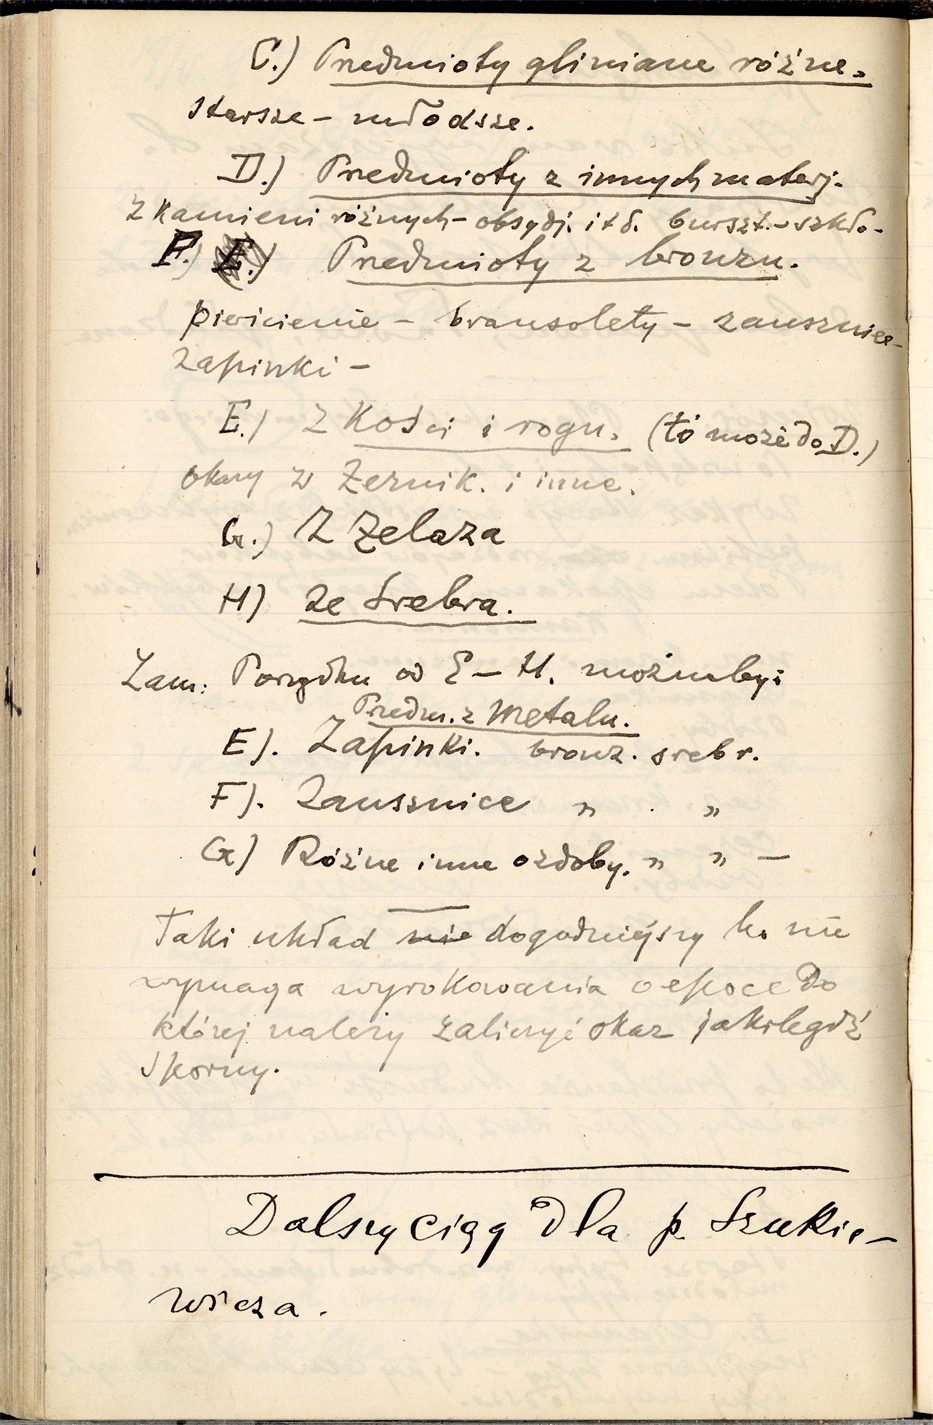 C.) Przedmioty gliniane różne.
starsze – młodsze.
D.) Przedmioty z innych materj.
z kamieni różnych – obsydj. i t d. burszt. – szkło –
F.) E.) Przedmioty z bronzu.
pierścienie – bransolety – zausznice –
zapinki –
E.) Z Kości i rogu. (to może do D.)
okazy z Żernik. i inne.
G.) Z Żelaza
H) ze Srebra.
Zam: Porządku od E – H. możnaby:
Przedm. z Metalu.
E). Zapinki. bronz. srebr.
F). Zausznice „ . „
G) Różne inne ozdoby. „ „ –
Taki układ nie dogodniejszy bo nie
wymaga wyrokowania o epoce do
której należy zaliczyć okaz jakilegdź
sporny.
Dalszy ciąg dla p. Szukie–
wicza.